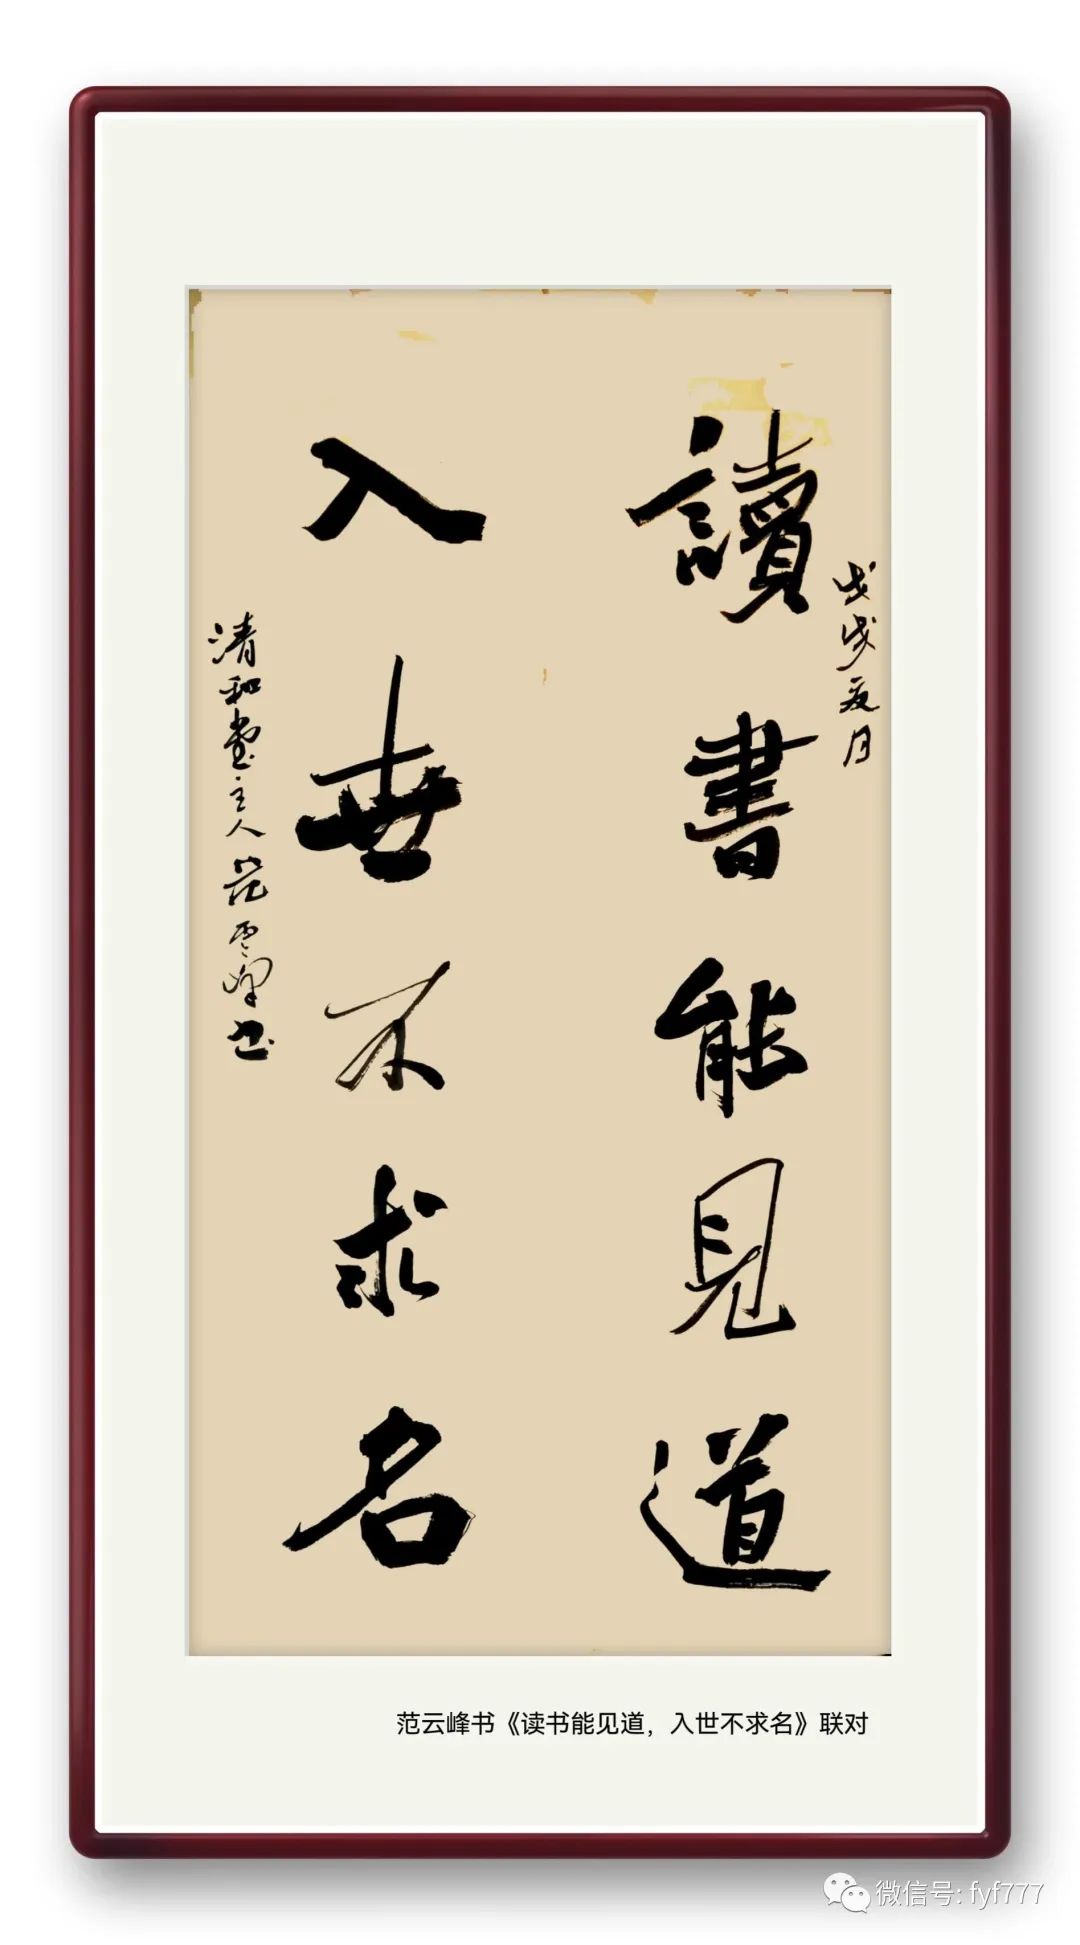 戊戌夏月
讀書能見道
入世不求名
清和堂主人范云峰书
范云峰书《读书能见道，入世不求名》联对
微信号: fyf777